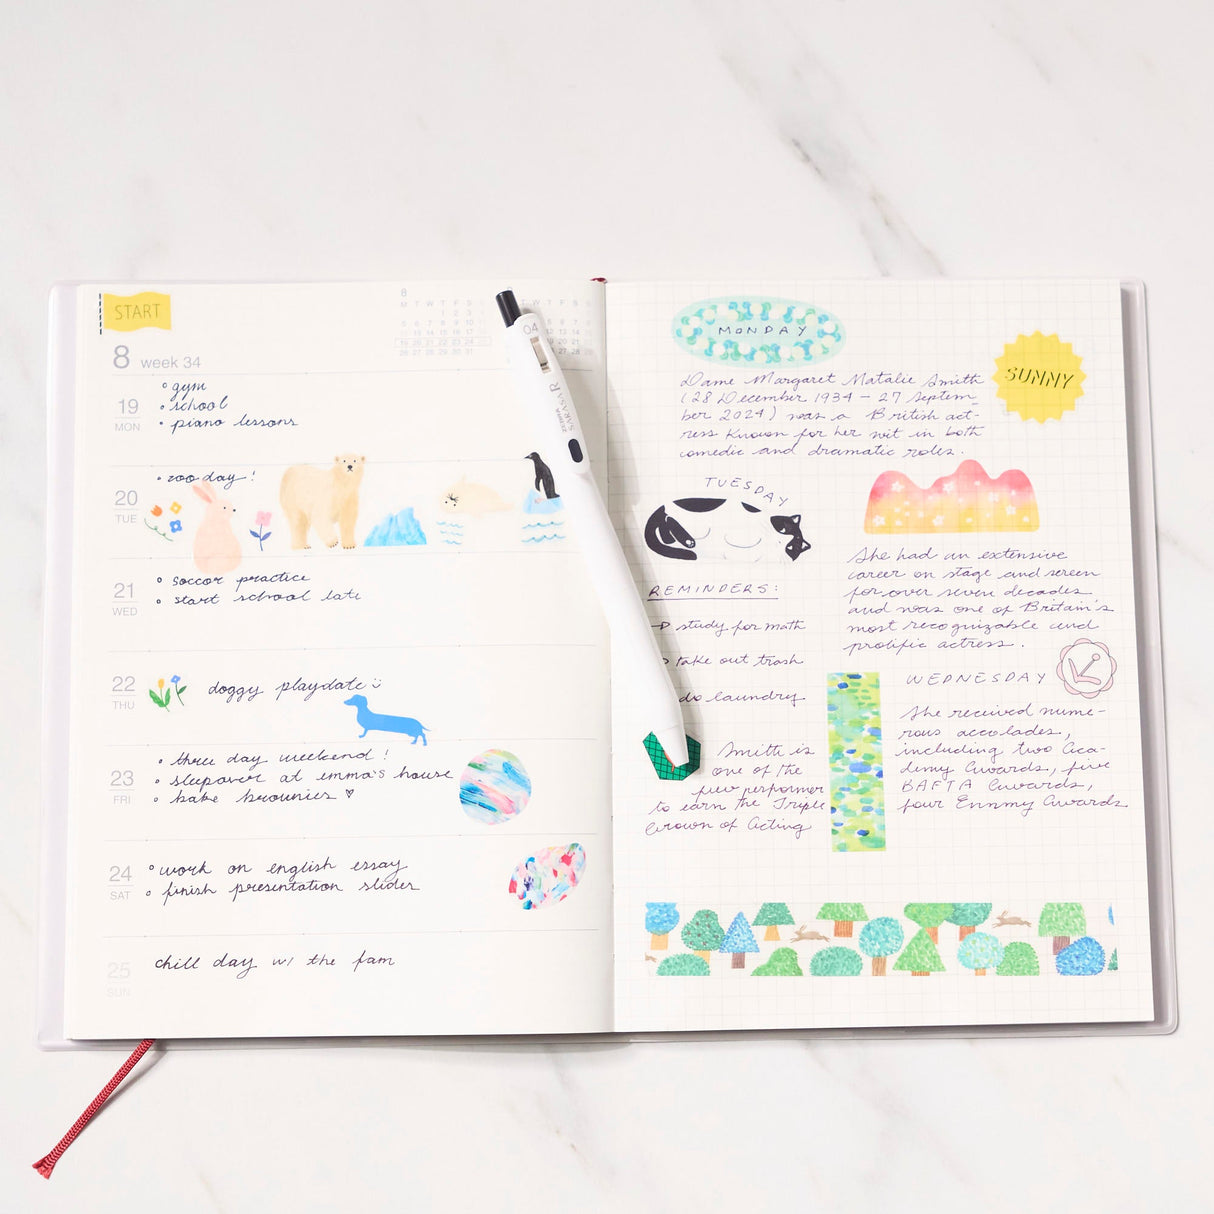 START
8 week 34
8
M T W T F S
1 2 3
19
MON
gym
school
piano lessons
20
TUE
zoo day!
21
WED
soccor practice
start school late
22
THU
doggy playdate
23
FRI
three day weekend!
sleepover at emma's house
bake brownies
24
SAT
work on english essay
finish presentation slider
25
SUN
chill day w/ the fam
04
ZEBRA
SARASA R
MONDAY
SUNNY
Dame Margaret Natalie Smith
(28 December 1934 – 27 Septem-
ber 2024) was a British act-
ress known for her wit in both
comedic and dramatic roles.
TUESDAY
She had an extensive
career on stage and screen
for over seven decades
and was one of Britain's
most recognizable and
prolific actress.
REMINDERS:
study for math
take out trash
do laundry
Smith is
one of the
few performer
to earn the Triple
Crown of Acting
WEDNESDAY
She received nume-
rous accolades,
including two Aca-
demy Awards, five
BAFTA Awards,
four Emmy Awards